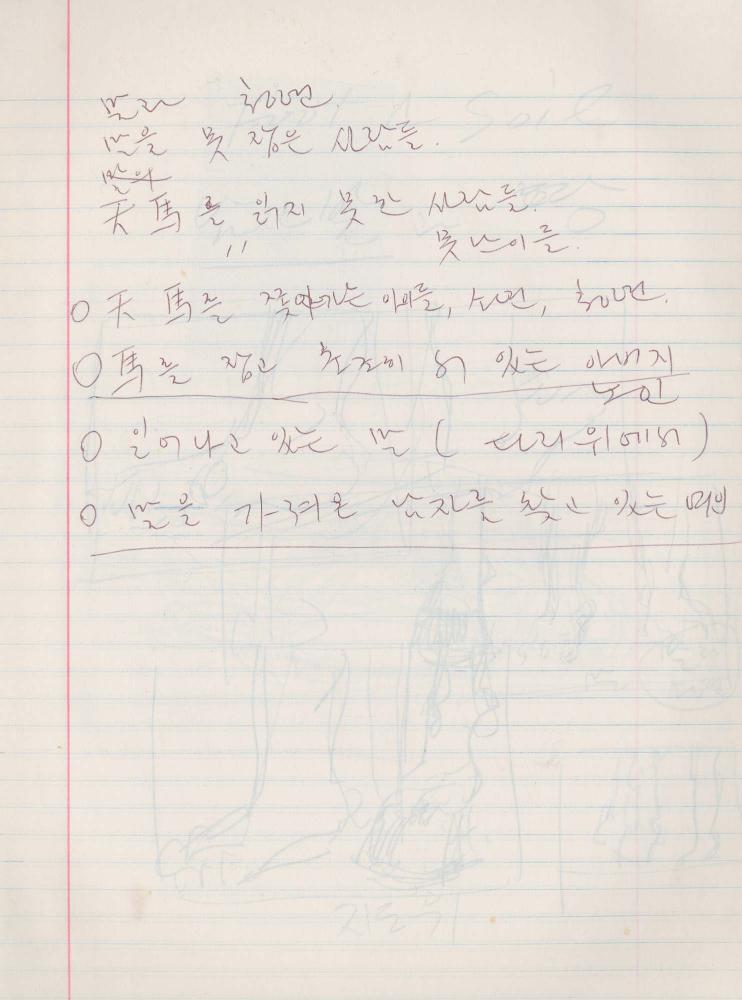 말과 청년.
말을 못 잡은 사람들.
말의
天馬를 읽지 못한 사람들.
〃 못난 이들.
○ 天馬를 쫓아가는 아이들, 소년, 청년.
○ 馬를 잡고 초조히 서 있는 아버지
노인
○ 일어나고 있는 말 ( 다리 위에서 )
○ 말을 가져온 남자를 찾고 있는 여인
지도위